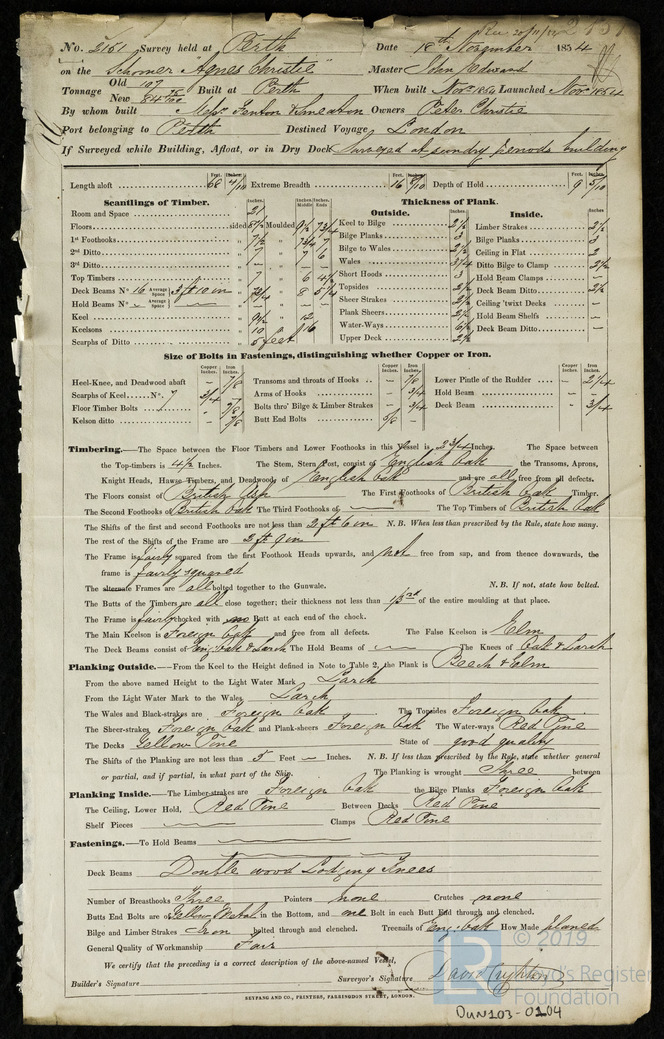 Rec 20/11/54 2151
No. 2151 Survey held at Perth Date 18th November 1854
on the Schooner "Agnes Christie" Master John Edward
Tonnage Old 107 New 84 75/100 Built at Perth When built Novr 1854 Launched Novr 1854
By whom built Messrs Fenton & Smeaton Owners Peter Christie
Port belonging to Perth Destined Voyage London
If Surveyed while Building, Afloat, or in Dry Dock Surveyed at sundry periods building
Feet. Inches. Feet. Inches. Feet. Inches.
Length aloft 68 4/10 Extreme Breadth 16 /10 Depth of Hold 9 5/10
Scantlings of Timber. Thickness of Plank.
Inches. Inches. Middle Inches. Ends Outside. Inches. Inside. Inches
Room and Space 21 Keel to Bilge 2½ Limber Strakes 2½
Floors sided 8½ Moulded 9½ 7¾ Bilge Planks 3 Bilge Planks 3
1st Foothooks " 7½ " 7¾ 7 Bilge to Wales 2½ Ceiling in Flat 2
2nd Ditto " 7 " 7 6 Wales 3¼ Ditto Bilge to Clamp 2½
3rd Ditto " — " — — Short Hoods 3 Hold Beam Clamps —
Top Timbers " 7 " 6 Topsides 2½ Deck Beam Ditto 2½
Deck Beams No. 16 Average Space 3 ft 10 in " " 8 5¼ Sheer Strakes 2½ Ceiling 'twixt Decks —
Hold Beams No. — Average Space — " — " — — Plank Sheers 2½ Hold Beam Shelfs —
Keel " 9½ " 12 Water-Ways 6½ Deck Beam Ditto —
Keelsons " 10 " 16 Upper Deck 2½
Scarphs of Ditto 5 feet
Size of Bolts in Fastenings, distinguishing whether Copper or Iron.
Copper Inches. Iron Inches. Copper Inches. Iron Inches. Copper Inches. Iron Inches.
Heel-Knee, and Deadwood abaft — 7/8 Transoms and throats of Hooks — 7/8 Lower Pintle of the Rudder — 2¼
Scarphs of Keel No. 7 ¾ — Arms of Hooks — ¾ Hold Beam — —
Floor Timber Bolts — 7/8 Bolts thro' Bilge & Limber Strakes — ¾ Deck Beam — ¾
Kelson ditto — 7/8 Butt End Bolts 5/8 —
Timbering.—The Space between the Floor Timbers and Lower Foothooks in this Vessel is 2¾ Inches. The Space between
the Top-timbers is 4½ Inches. The Stem, Stern Post, consist of English Oak the Transoms, Aprons,
Knight Heads, Hawse Timbers, and Deadwood, of English Oak and are all free from all defects.
The Floors consist of British Ash The First Foothooks of British Oak Timber.
The Second Foothooks of British Oak The Third Foothooks of — The Top Timbers of British Oak
The Shifts of the first and second Foothooks are not less than 2 ft 6 in N. B. When less than prescribed by the Rule, state how many.
The rest of the Shifts of the Frame are 2 ft 9 in
The Frame is fairly squared from the first Foothook Heads upwards, and not free from sap, and from thence downwards, the
frame is fairly squared
The alternate Frames are all bolted together to the Gunwale. N. B. If not, state how bolted.
The Butts of the Timbers are all close together; their thickness not less than 1/3rd of the entire moulding at that place.
The Frame is fairly chocked with no Butt at each end of the chock.
The Main Keelson is Foreign Oak and free from all defects. The False Keelson is Elm
The Deck Beams consist of Eng. Oak & Larch The Hold Beams of — The Knees of Oak & Larch
Planking Outside.—From the Keel to the Height defined in Note to Table 2, the Plank is Beech & Elm
From the above named Height to the Light Water Mark Larch
From the Light Water Mark to the Wales Larch
The Wales and Black-strakes are Foreign Oak The Topsides Foreign Oak
The Sheer-strakes Foreign Oak and Plank-sheers Foreign Oak The Water-ways Red Pine
The Decks Yellow Pine State of good quality
The Shifts of the Planking are not less than 5 Feet — Inches. N. B. If less than prescribed by the Rule, state whether general
or partial, and if partial, in what part of the Ship. The Planking is wrought Three between
Planking Inside.—The Limber-strakes are Foreign Oak the Bilge Planks Foreign Oak
The Ceiling, Lower Hold, Red Pine Between Decks Red Pine
Shelf Pieces — Clamps Red Pine
Fastenings.—To Hold Beams
Deck Beams Double wood Lodging Knees
Number of Breasthooks Three Pointers none Crutches none
Butts End Bolts are of Yellow Metal in the Bottom, and one Bolt in each Butt End through and clenched.
Bilge and Limber Strakes Iron bolted through and clenched. Treenails of Eng. Oak How Made Planed
General Quality of Workmanship Fair
We certify that the preceding is a correct description of the above-named Vessel,
Builder's Signature Surveyor's Signature David Crighton
REYPANG AND CO., PRINTERS, FARRINGDON STREET, LONDON.
DUN103-0104
LR © 2019
Lloyd's Register
Foundation